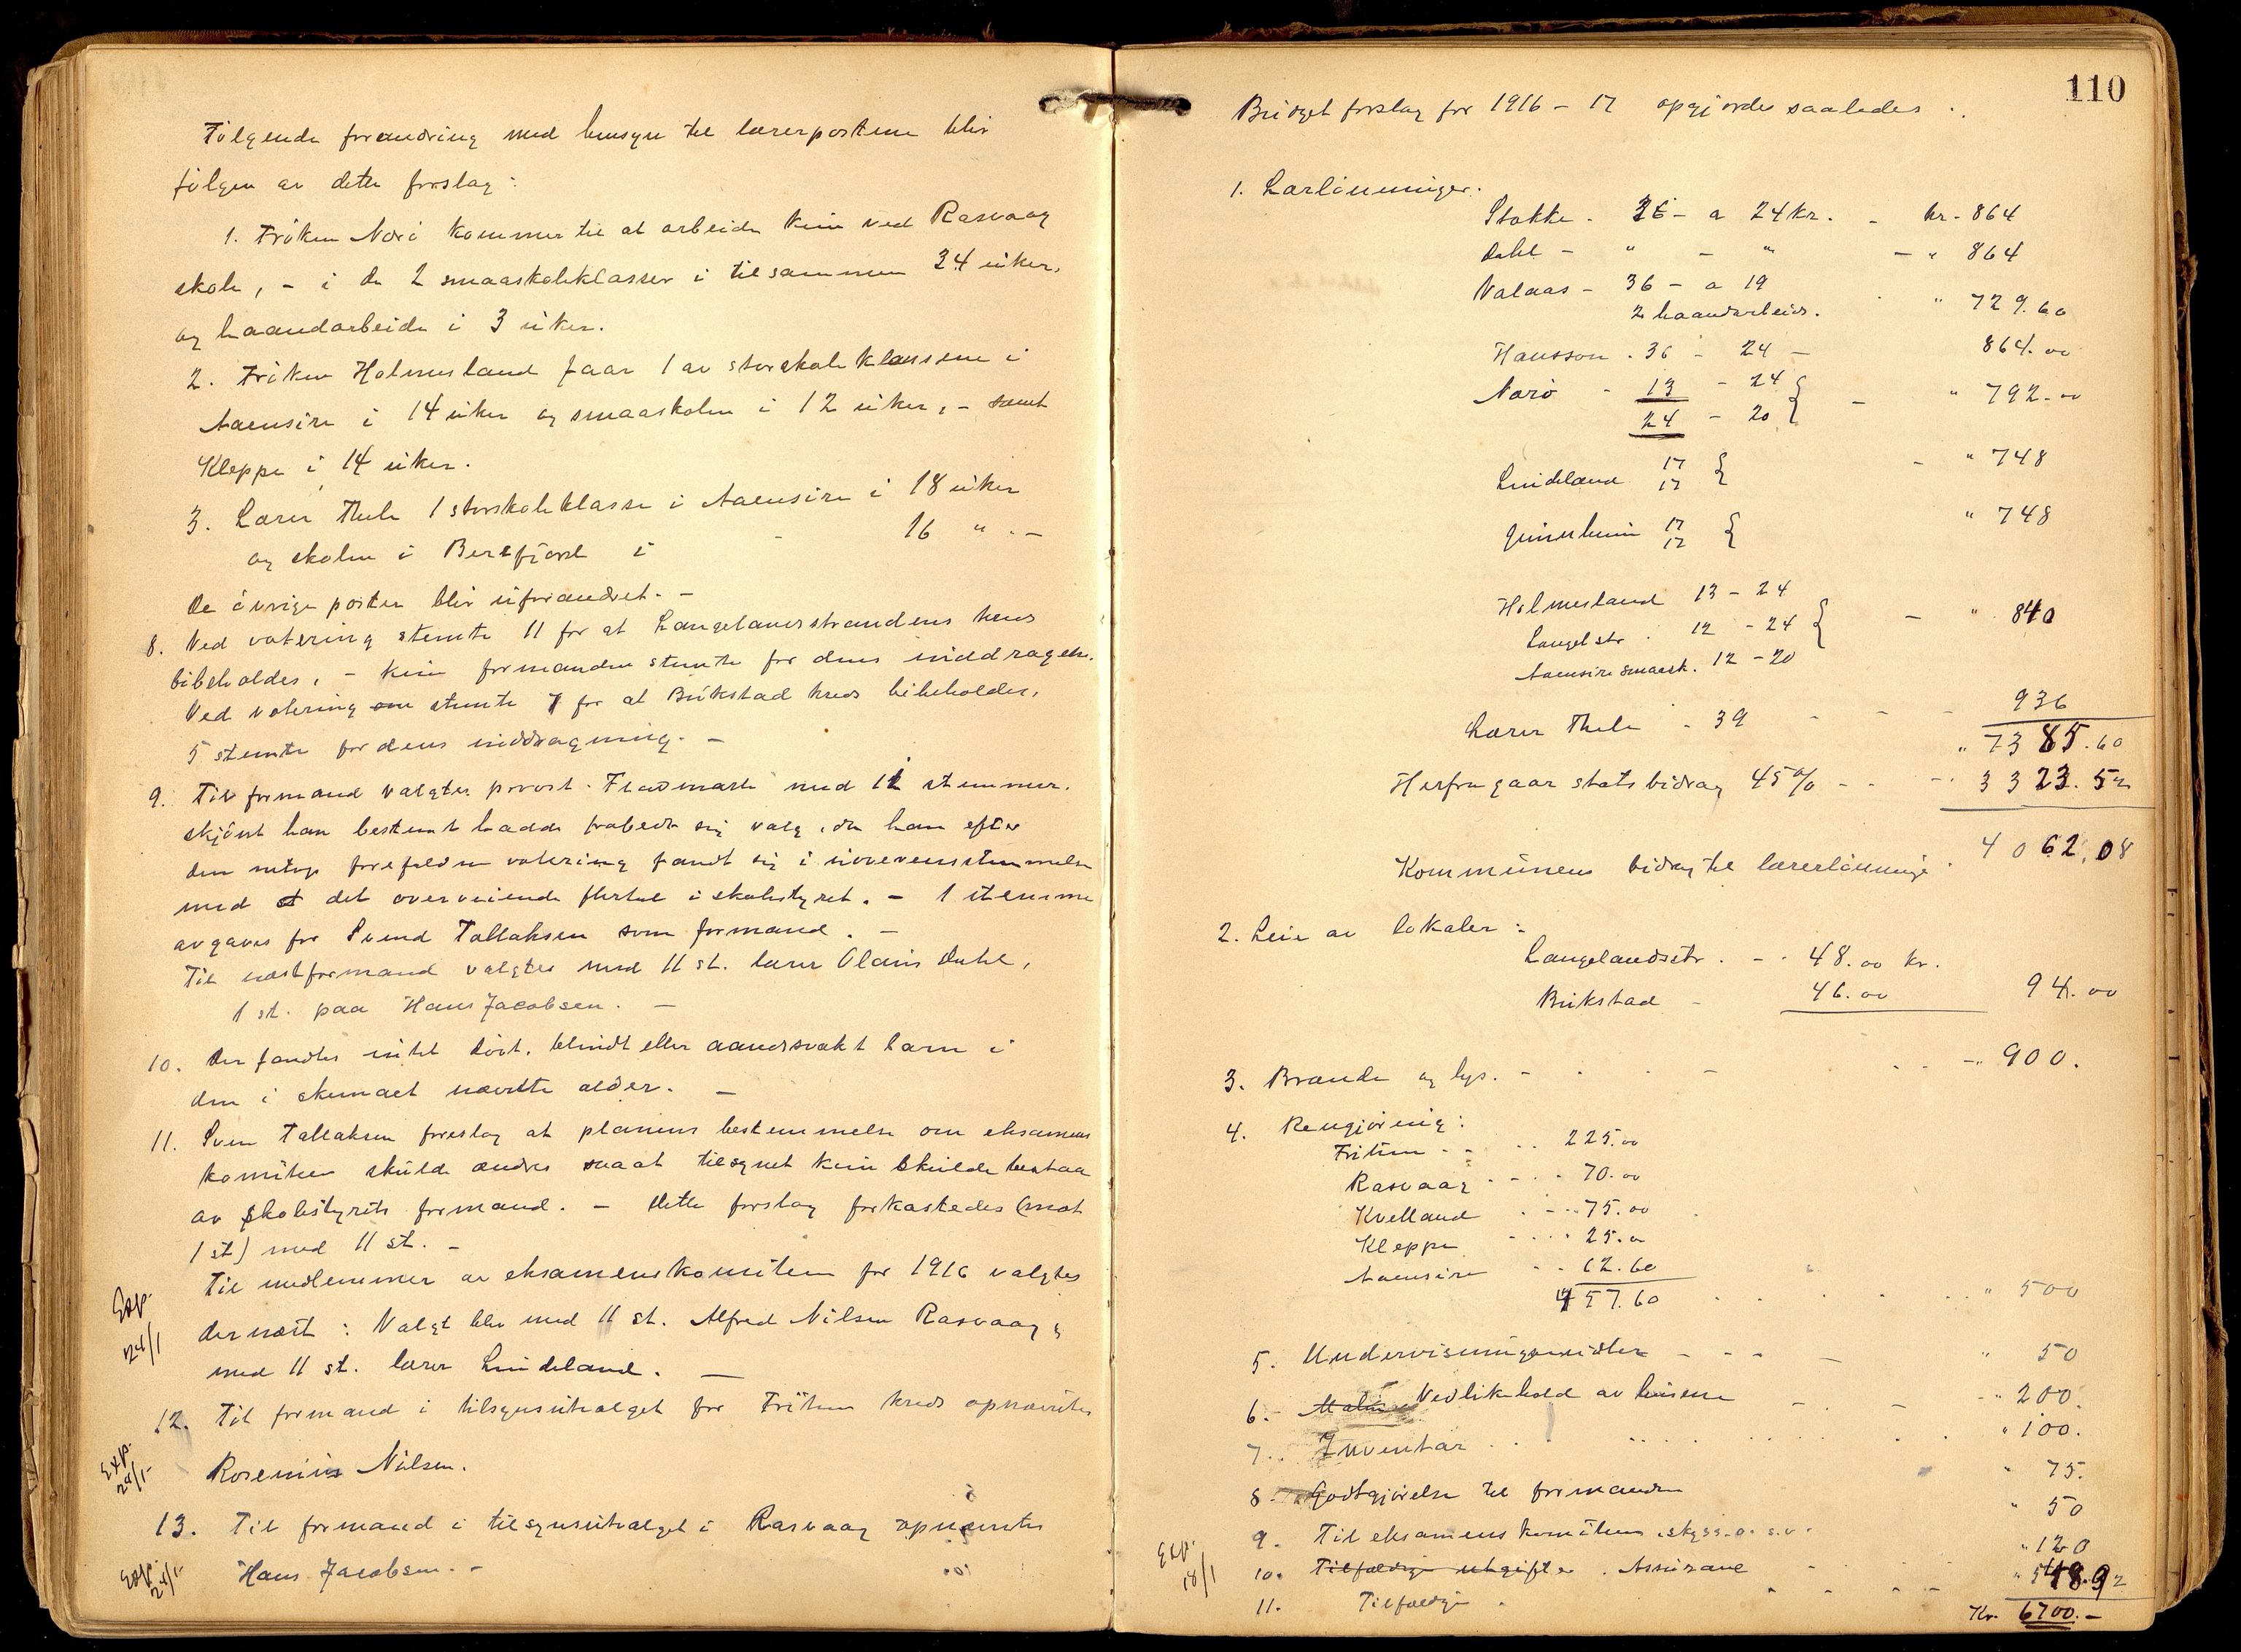 Følgende forandring med hensyn til lærerpostene blir
følgen av dette forslag:
1. Frøken Norø kommer til at arbeide kun ved Rasvaag
skole, - i de 2 smaaskoleklasser i tilsammen 24 uker,
og haandarbeide i 3 uker.
2. Frøken Holmesland faar 1 av storskoleklassene i
Aaensire i 14 uker og smaaskolen i 12 uker, - samt
Kleppe i 14 uker.
3. Lærer Thele 1 storskoleklasse i Aaensire i 18 uker
og skolen i Berefjord i - 16 " . -
De øvrige poster blir uforandret. -
8. Ved votering stemte 11 for at Langelandsstrandens kreds
bibeholdes, - kun formanden stemte for dens inddragelse.
Ved votering om stemte 7 for at Bukstad kreds bibeholdes,
5 stemte for dens inddragning. -
9. Til formand valgtes provst Flodmark med 11 stemmer,
skjønt han bestemt hadde frabedt sig valg, da han efter
den netop forefaldne votering fandt sig i uoverensstemmelse
med det overveiende flertal i skolestyret. - 1 stemme
avgaves for Svend Tallaksen som formand. -
Til næstformand valgtes med 11 st. lærer Olaus Dahl,
1 st. paa Hans Jacobsen. -
10. Der fandtes intet døvt, blindt eller aandssvakt barn i
den i skemaet nævnte alder. -
11. Sven Tallaksen foreslog at planens bestemmelse om eksamens
komiteen skulde ændres saaat tilsynet kun skulde bestaa
av skolestyrets formand. - Dette forslag forkastedes (mot
1 st) med 11 st. -
Til medlemmer av eksamenskomiteen for 1916 valgtes
dernæst: Valgt blev med 11 st. Alfred Nilsen Rasvaag og
med 11 st. lærer Lindeland. -
Exp. 24/1
12. Til formand i tilsynsutvalget for Fritun kreds opnævntes
Rosenius Nilsen.
Exp. 24/1
13. Til formand i tilsynsutvalget i Rasvaag opnævntes
Hans Jacobsen. -
Exp. 24/1
110
Budgetforslag for 1916 - 17 opgjordes saaledes:
1. Lærlønninger.
Stokke - 36 - a 24 kr. - kr. 864
Dahl - " - " - " 864
Valaas - 36 - a 19
2 haandarbeid. " 729.60
Hansson. 36 - 24 - 864.00
Norø - 13 - 24 } - " 792.00
24 - 20
Lindeland 17 } - " 748
17
17 } " 748
17
Holmesland 13 - 24
Langelstr. 12 - 24 } - " 840
Aaensire smaask. 12 - 20
Lærer Thele - 39 - - - 936
" 7385.60
Herfra gaar statsbidrag 45% - - 3323.52
4062,08
Kommunens bidrag til lærerlønninge
2. Leie av lokaler:
Langelandsstr. - 48.00 kr.
Bukstad - 46.00 94.00
3. Brænde og lys. - - - " 900.
4. Rengjøring:
Fritun - - 225.00
Rasvaag - - - 70.00
Kvelland - - 75.00
Kleppe - - 25.00
Aaensire - - 62.60
457.60 " 500
5. Undervisningsmidler - - - - " 50
6. Vedlikehold av husene - - - " 200.
7. Inventar . . " 100.
8. Godtgjørelse til formanden " 75.
9. Til eksamenskomiteen, skyss o.s.v. " 50
Exp. 18/1
10. Tilfældige utgifter. Assurance - " 120
11. Tilfældige . - - " 548.92
Kr. 6700.-